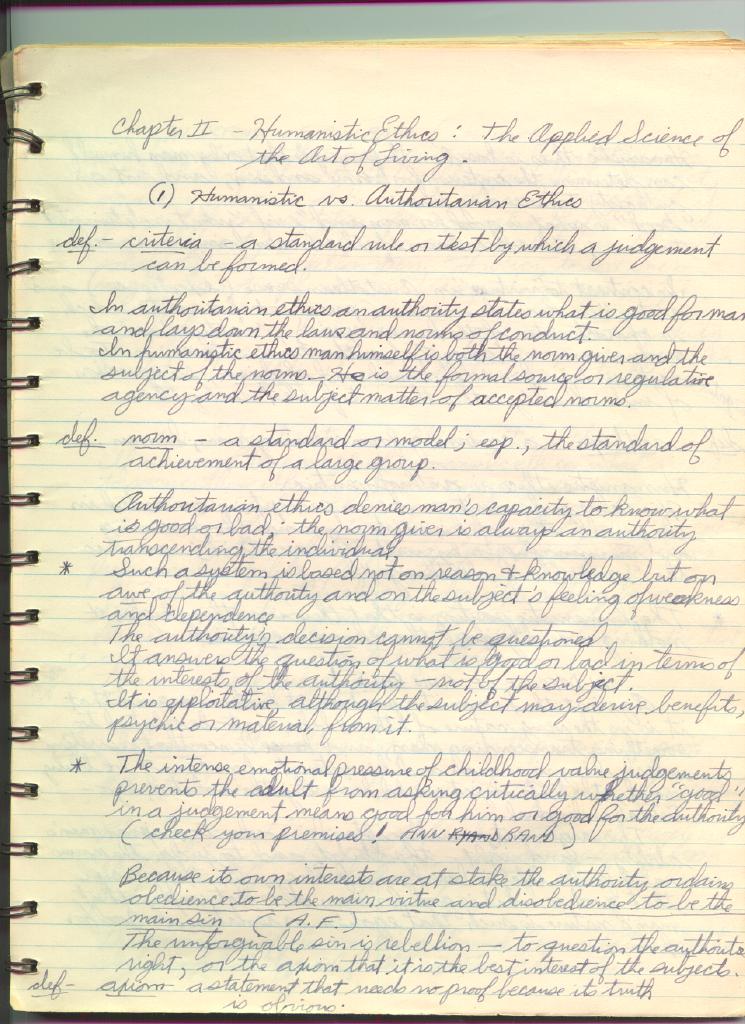 Chapter II - Humanistic Ethics : The Applied Science of
the Art of Living.
(1) Humanistic vs. Authoritarian Ethics
def. - criteria - a standard rule or test by which a judgement
can be formed.
In authoritarian ethics an authority states what is good for man
and lays down the laws and norms of conduct.
In humanistic ethics man himself is both the norm giver and the
subject of the norms. He is the formal source or regulative
agency and the subject matter of accepted norms.
def. norm - a standard or model; esp., the standard of
achievement of a large group.
Authoritarian ethics denies man's capacity to know what
is good or bad; the norm giver is always an authority
transcending the individual.
* Such a system is based not on reason & knowledge but on
awe of the authority and on the subject's feeling of weakness
and dependence
The authority's decision cannot be questioned
It answers the question of what is good or bad in terms of
the interests of the authority - not of the subject.
It is exploitative, although the subject may derive benefits,
psychic or material, from it.
* The intense emotional pressure of childhood value judgements
prevents the adult from asking critically whether "good"
in a judgement means good for him or good for the authority
(check your premises! ANN RYAND RAND)
Because its own interests are at stake the authority ordains
obedience to be the main virtue and disobedience to be the
main sin (A.F.)
The unforgivable sin is rebellion - to question the authority
right, or the axiom that it is the best interest of the subjects.
def - axiom - a statement that needs no proof because its truth
is obvious.